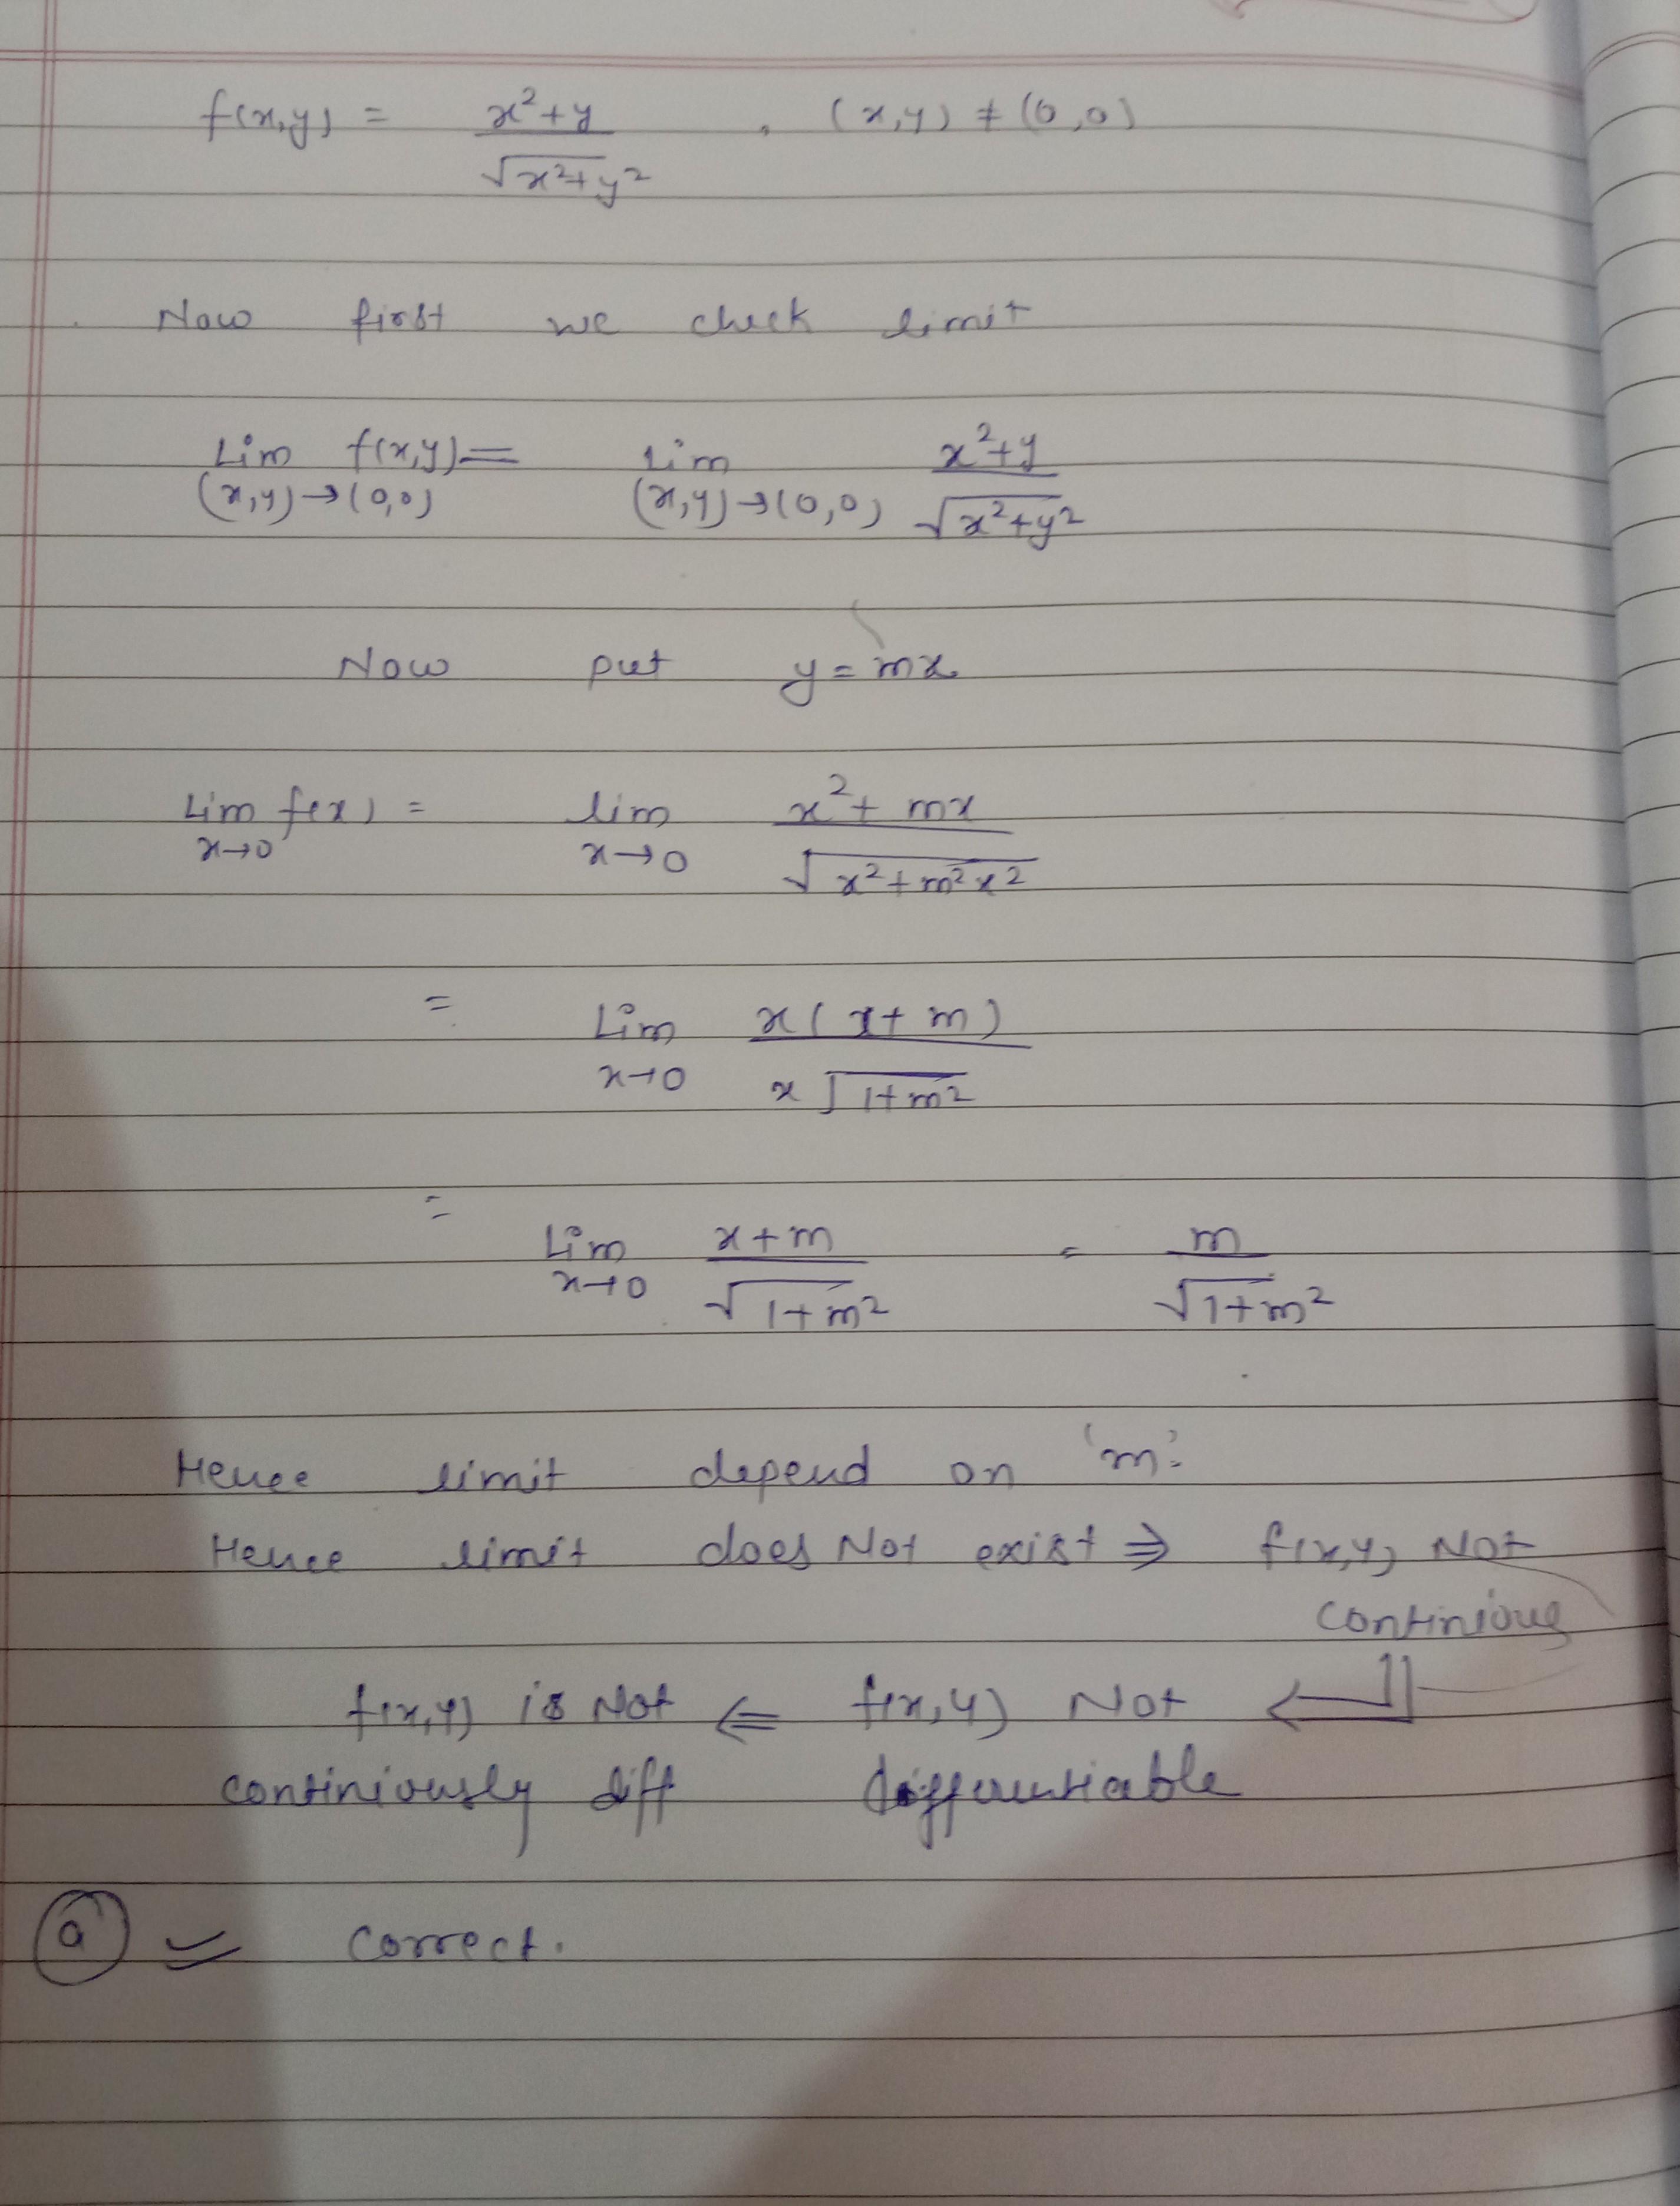 f(x,y) = x²+y / √x²+y² , (x,y) ≠ (0,0)
Now first we check limit
Lim (x,y)→(0,0) f(x,y) = Lim (x,y)→(0,0) x²+y / √x²+y²
Now put y = mx
Lim x→0 f(x) = lim x→0 x²+mx / √x²+m²x²
= Lim x→0 x(x+m) / x√1+m²
= Lim x→0 x+m / √1+m² = m / √1+m²
Hence limit depend on 'm'.
Hence limit does Not exist ⇒ f(x,y) Not
continious
f(x,y) is Not ⇐ f(x,y) Not ⇐
continiously diff differentiable
a = correct.